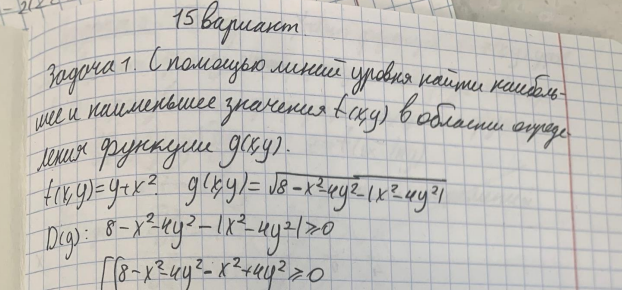 15 вариант
Задача 1. С помощью линий уровня найти наиболь-
шее и наименьшее значения f(x,y) в области опреде-
ления функции g(x,y).
f(x,y)=y+x². g(x,y)=√8-x²-4y²-|x²-4y²|
D(g): 8-x²-4y²-|x²-4y²|≥0
[{8-x²-4y²-x²+4y²≥0